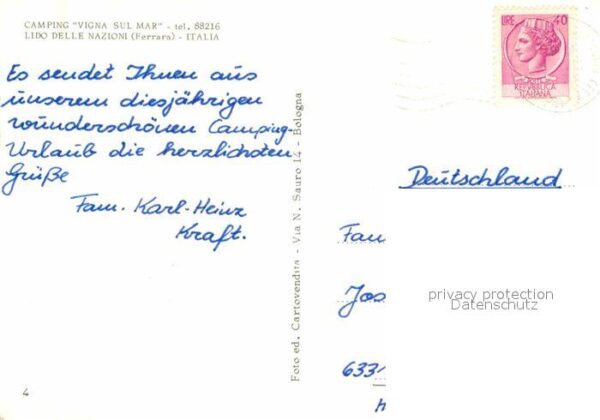 CAMPING "VIGNA SUL MAR" - tel. 88216
LIDO DELLE NAZIONI (Ferrara) - ITALIA
Es sendet Ihnen aus
unserem diesjährigen
wunderschönen Camping-
Urlaub die herzlichsten
Grüße
Fam. Karl-Heinz
Kraft.
4
Foto ed. Cartovendita - Via N. Sauro 14 - Bologna
LIRE 40
REPVBBLICA
ITALIANA
Deutschland
Fam
Jos
privacy protection
Datenschutz
633